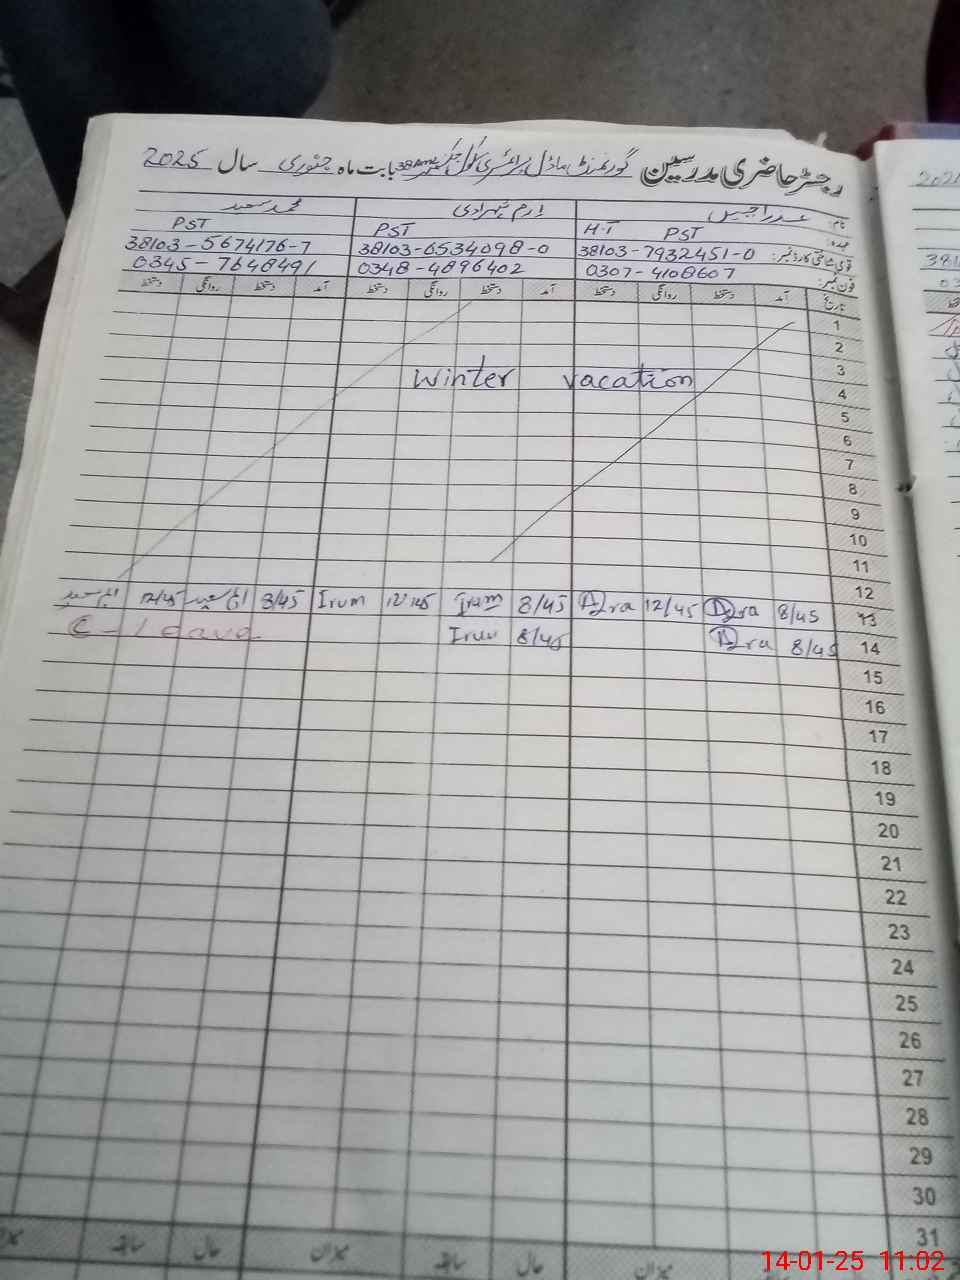 رجسٹر حاضری مدرسین گورنمنٹ ماڈل پرائمری سکول چک نمبر 38 بابت ماہ جنوری سال 2025
نام: عذرا جبیں ارم شہزادی محمد سعید
عہدہ: H.T PST PST PST
قومی شناختی کارڈ نمبر: 38103-7932451-0 38103-6534098-0 38103-5674176-7
فون نمبر: 0307-4108607 0348-4896402 0345-7648491
تاریخ آمد دستخط روانگی دستخط آمد دستخط روانگی دستخط آمد دستخط روانگی دستخط
1
2
3
Winter vacation
4
5
6
7
8
9
10
11
12
13 8/45 Azra 12/45 Azra 8/45 Irum 12/45 Irum 8/45 12/45
14 8/45 Azra 8/45 Irum C-Leave
15
16
17
18
19
20
21
22
23
24
25
26
27
28
29
30
31
میزان حال سابقہ میزان حال سابقہ میزان
14-01-25 11:02